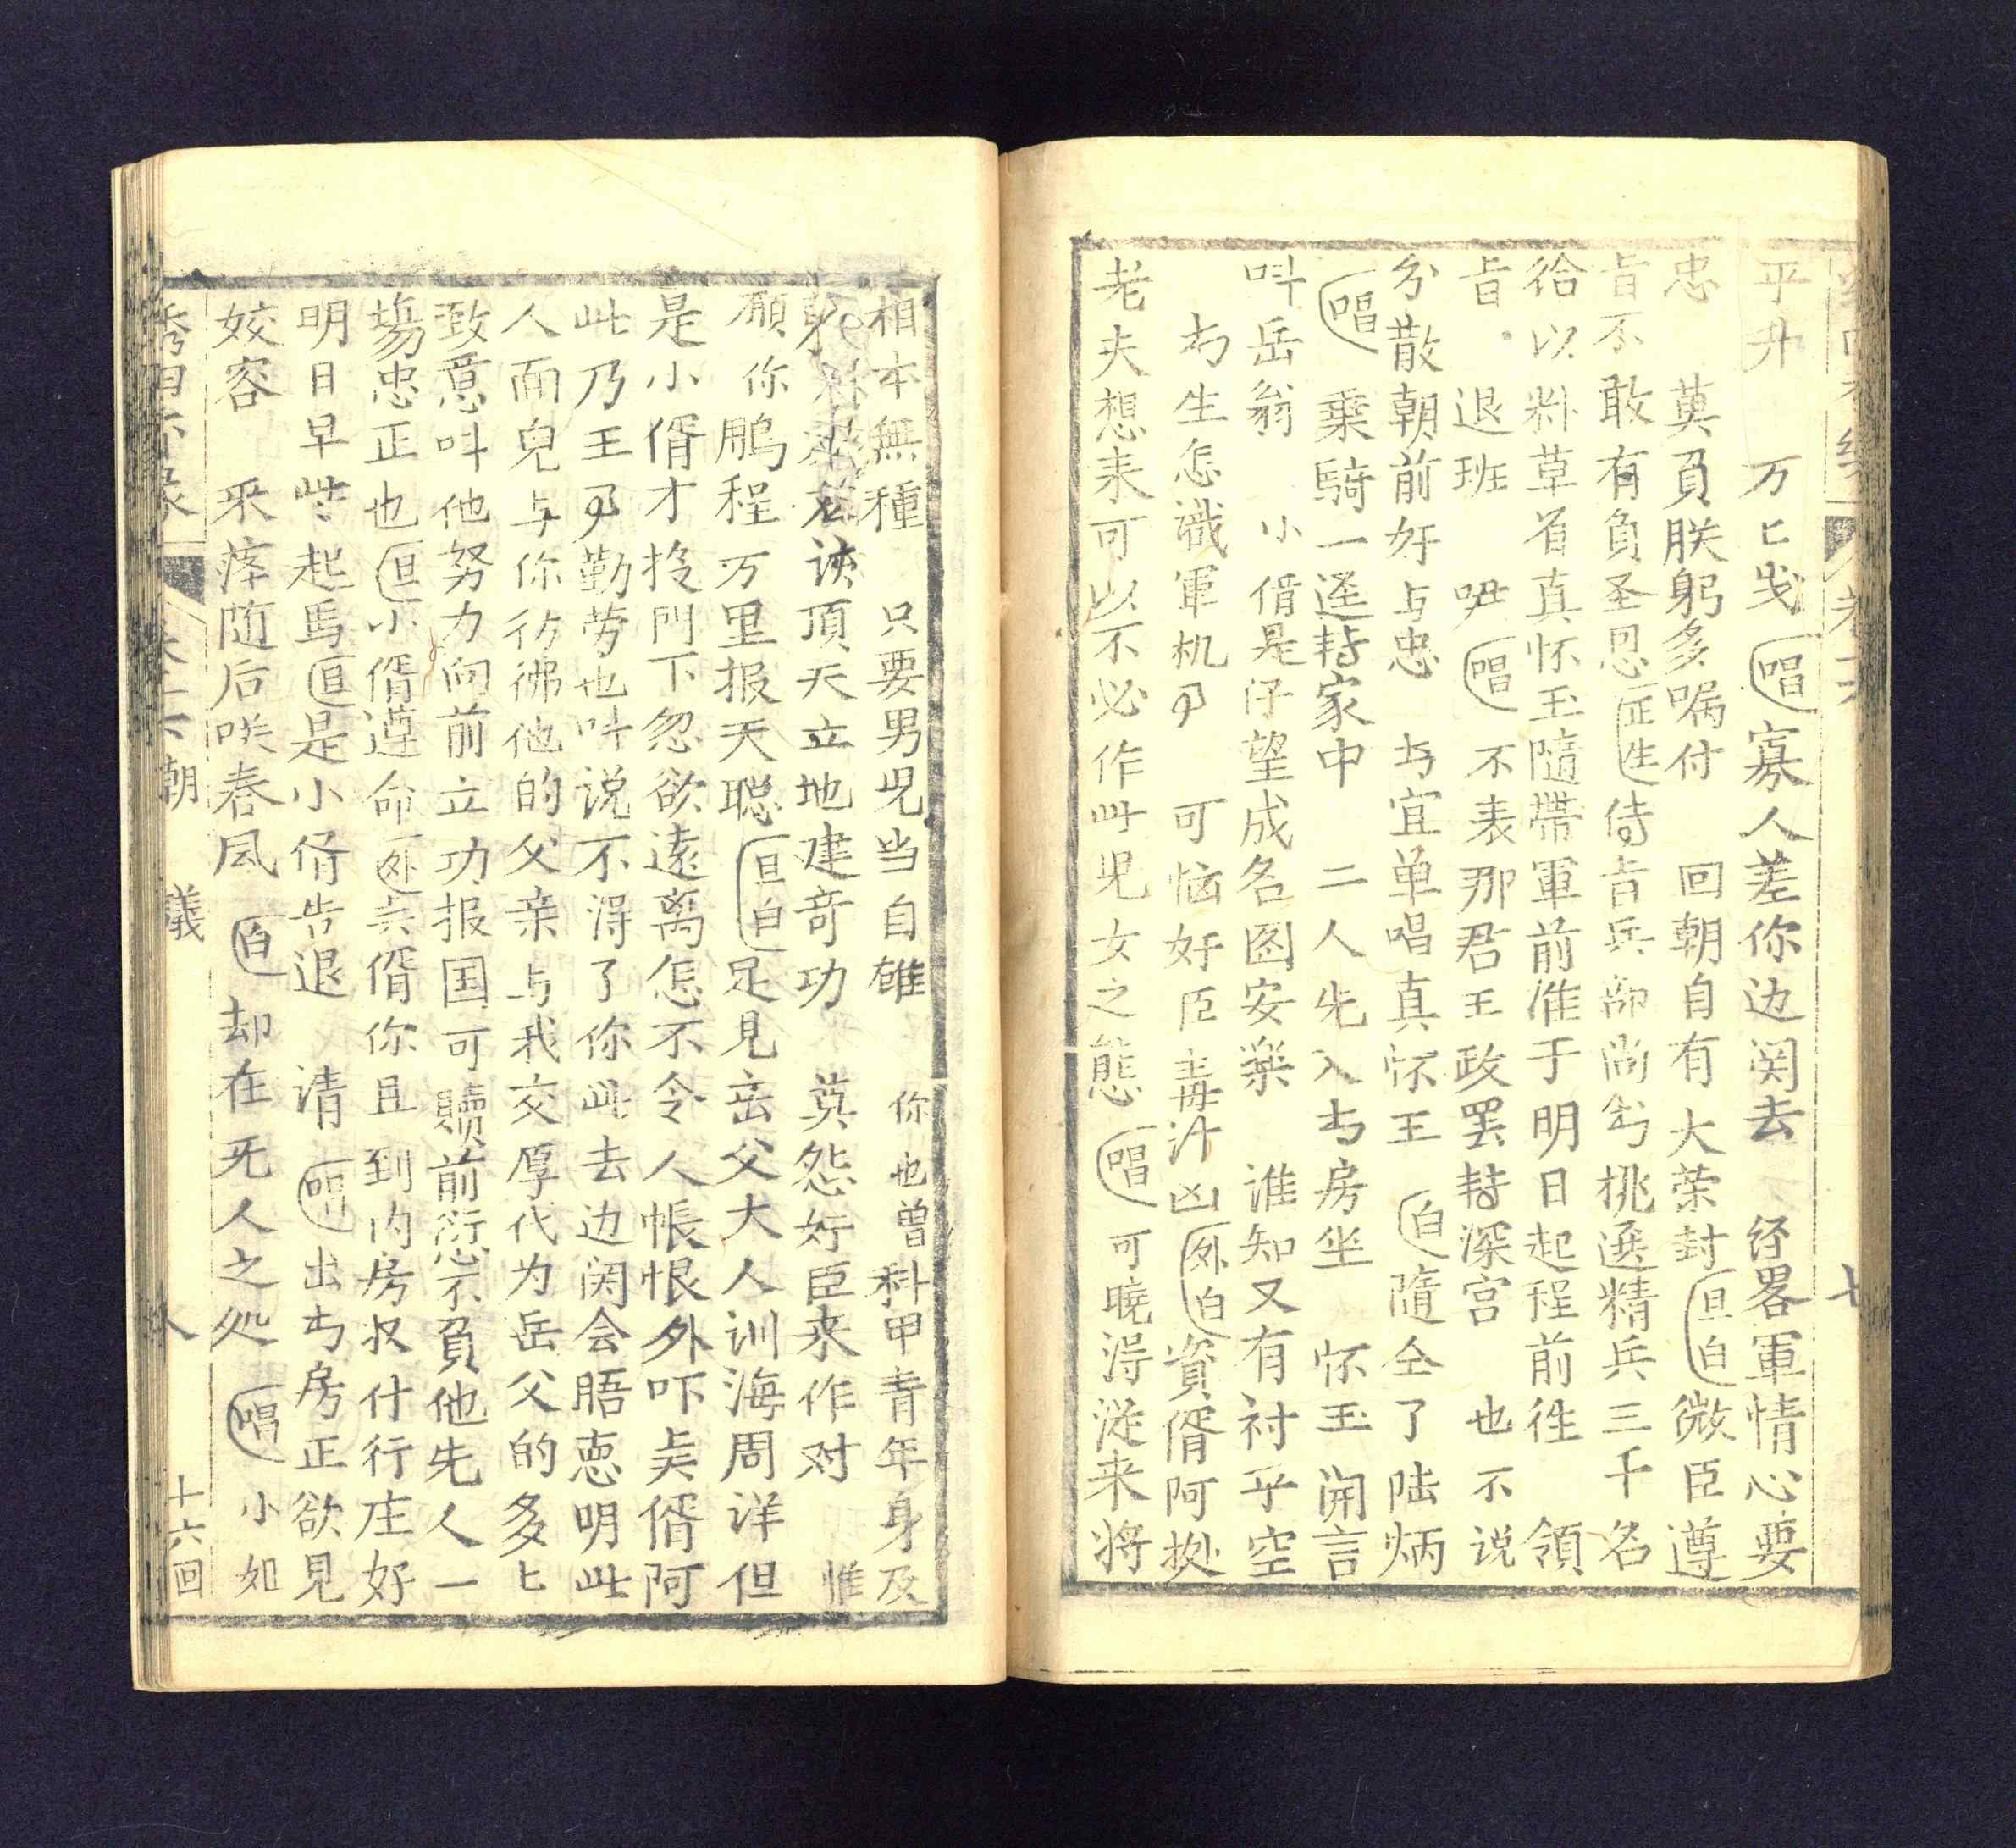 卷六
七
平升　万匕岁　唱　寡人差你边関去　经畧軍情心要
忠　莫負朕躬多嘱付　回朝自有大荣封　旦白　微臣遵
旨不敢有負圣恩　正生　侍旨兵部尚书挑選精兵三千名
给以料草着真怀玉隨帶軍前准于明日起程前往　領
旨　退班　唱　不表那君王政罢转深宫　也不说
分散朝前奸与忠　书宜单唱真怀王　白　隨仝了陆炳
唱　乘騎一逕转家中　二人先入书房坐　怀玉開言
叫岳翁　小婿是仔望成名图安楽　谁知又有衬乎空
书生怎識軍机事　可恼奸臣毒汁凶　外白　資婿阿拠
老夫想来可以不必作此児女之態　唱　可曉得従来將
相本無種　只要男児当自雄　你也曾科甲青年身及
第　頂天立地建奇功　莫怨奸臣来作对　惟
願你鵬程万里报天聪　旦白　足見岳父大人训海周详但
是小婿才投門下忽欲遠离怎不令人帳恨外吓矣婿阿
此乃王事勤劳也叫说不得了你此去边関会晤恵明此
人面皃与你彷彿他的父亲与我交厚代为岳父的多匕
致意叫他努力向前立功报国可贖前愆不負他先人一
塲忠正也　旦　小婿遵命　外　矣婿你且到内房収什行庄好
明日早些起馬　旦　是小婿告退　请　唱　出书房正欲見
姣容　釆蓱随后咲春风　白　却在死人之处　唱　小如
朝　議
八
十六回